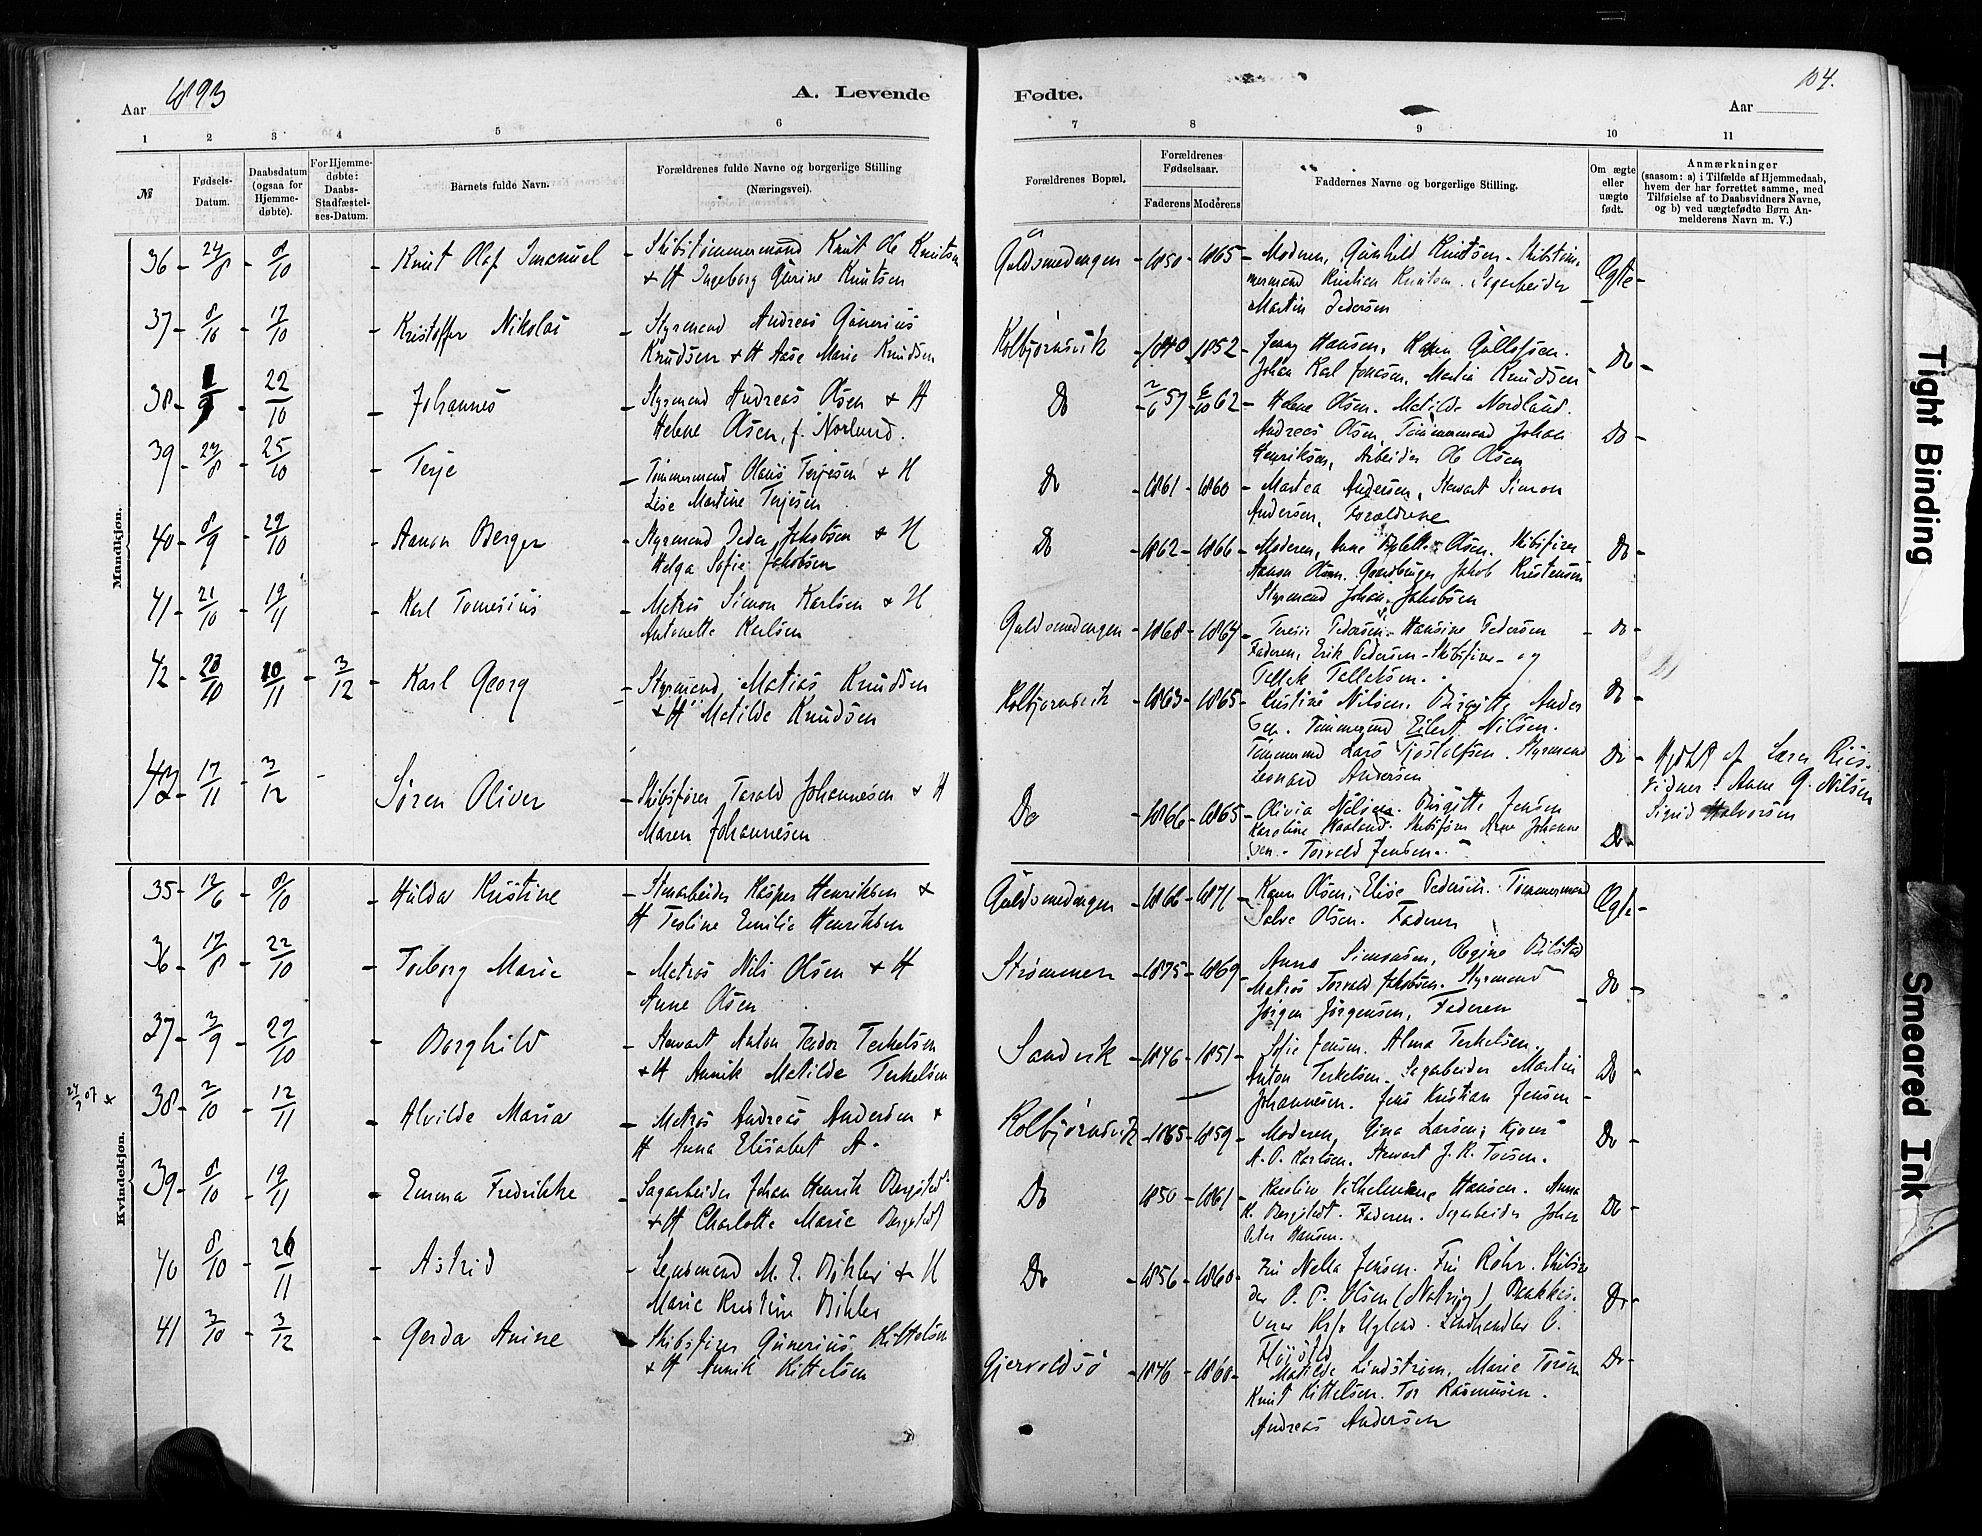 Aar 1893
A. Levende
1 2 3 4 5 6
№
Fødsels-Datum.
Daabsdatum (ogsaa for Hjemmedøbte).
For Hjemmedøbte: Daabs-Stadfæstelses-Datum.
Barnets fulde Navn.
Forældrenes fulde Navne og borgerlige Stilling
(Næringsvei).
Mandkjøn.
36 - 24/8 - 8/10 - Knut Olaf Imanuel - Skibstømmermand Knut Ols Knutsen
+ H Ingeborg Gurine Knutsen
37 - 8/10 - 17/10 - Kristoffer Nikolai - Styrmand Andreas Gunerius
Knudsen + H Aase Marie Knudsen
38 - 1/9 - 22/10 - Johannes - Styrmand Andreas Olsen + H
Helene Olsen, f. Norlund.
39 - 23/8 - 25/10 - Terje - Tømmermand Olaus Terjesen + H
Lise Martine Terjesen
40 - 8/9 - 29/10 - Aanon Berger - Styrmand Peder Jakobsen + H
Helga Sofie Jakobsen
41 - 21/10 - 19/11 - Karl Tomesius - Matros Simon Karlsen + H
Antonette Karlsen
42 - 23/10 - 10/11 - 3/12 - Karl Georg - Styrmand, Matias Knudsen
+ H Matilde Knudsen
43 - 17/11 - 3/12 - Søren Oliver - Skibsfører Torald Johannesen + H
Maren Johannesen
Kvindekjøn.
35 - 12/6 - 8/10 - Hulda Kristine - Stenarbeider Kasper Henriksen +
H Tesline Emilie Henriksen
36 - 17/8 - 22/10 - Torborg Marie - Matros Nils Olsen + H
Anne Olsen
37 - 3/9 - 29/10 - Borghild - Stewart Anton Teodor Terkelsen
+ H Annik Matilde Terkelsen
38 - 2/10 - 12/11 - Alvilde Maria - Matros Andreas Andersen +
H Anna Elisabet A.
39 - 8/10 - 19/11 - Emma Fredrikke - Sagarbeider Johan Henrik Bergstedt
+ H Charlotte Marie Bergstedt
40 - 8/10 - 26/11 - Astrid - Lensmand M. E. Bøhler + H
Marie Kristine Bøhler
41 - 3/10 - 3/12 - Gerda Anine - Skibsfører Gunerius Kittelsen
+ H Annik Kittelsen
104.
Fødte.
Aar
7 8 9 10 11
Forældrenes Bopæl.
Forældrenes Fødselsaar.
Faderens Moderens
Faddernes Navne og borgerlige Stilling.
Om ægte eller uægte født.
Anmærkninger
(saasom: a) i Tilfælde af Hjemmedaab,
hvem der har forrettet samme, med
Tilføielse af to Daabsvidners Navne,
og b) ved uægtefødte Børn An-
melderens Navn m. V.)
Guldsmedengen - 1850 - 1865 - Moderen, Gunhild Knutsen. Skibstøm-
mermand Kristian Knutsen. Sagarbeider - Ægte -
Martin Pedersen
Kolbjørnsvik - 1840 - 1852 - Jenny Hansen, Karen Gullofsen.
Johan Karl Jonasen, Martin Knudsen - Do -
Do - 2/6 57 - 6/10 62 - Helene Olsen. Matilde Nordlund.
Andreas Olsen, Tømmermand Johan - Do -
Henriksen, Arbeider Ole Olsen
Do - 1861 - 1860 - Martea Andersen, Stewart Simon
Andersen, Forældrene
Do - 1862 - 1866 - Moderen, Anne Olsen. Skibsfører - Do -
Aanon Olsen. Gaardbruger Jakob Kristensen
Styrmand Johan Jakobsen
Guldsmedengen - 1868 - 1864 - Teresie Pedersen. Hansine Pedersen - Do -
Faderen, Erik Pedersen - Skibsfører - og
Tellek Tellefsen.
Kolbjørnsvik - 1863 - 1865 - Kristine Nilsen. Birgitte Ander - Do -
sen. Tømmermand Eilert Nilsen.
Tømmermand Lars Tjøstolfsen. Styrmand - Do - Hjdbt af Lærer Riis.
Leonard Andersen
Vidner: Anne G. Nilsen
Sigrid Halvorsen
Do - 1866 - 1865 - Olivia Nilsen. Birgitte Jensen
Karoline Haaland. Skibsfører Arne Johanne - Do -
sen. Torvald Jensen.
Guldsmedengen - 1866 - 1871 - Karen Olsen, Elise Pedersen. Tømmermand - Ægte -
Salve Olsen. Faderen
Strømmen - 1875 - 1869 - Anna Simonsen, Regine Bilstad
Matros Torvald Jakobsen. Styrmand - Do -
Jørgen Jørgensen, Faderen
Sandvik - 1846 - 1851 - Sofie Jensen. Alma Terkelsen.
Anton Terkelsen. Sagarbeider Martin - Do -
Johannesen. Jens Kristian Jensen -
Kolbjørnsvik - 1865 - 1859 - Moderen, Gina Larsen,
A. O. Karlsen. Stewart J. K. Torsen. - Do -
Do - 1850 - 1861 - Karoline Vilhelmine Hansen. Anna
K. Bergstedt. Faderen. Sagarbeider Johan - Do -
Peter Hansen.
Do - 1856 - 1860 - Fru Nella Jensen. Fru Röhr. Skibsre
der O. P. Olsen (Natvig) - Do -
Ugland. Landhandler C.
Fløystad
Gjervoldsø - 1846 - 1860 - Matilde Lindstrøm. Marie Torsen - Do -
Knut Kittelsen. Tor Rasmusen.
Andreas Andersen
Tight Binding
Smeared Ink